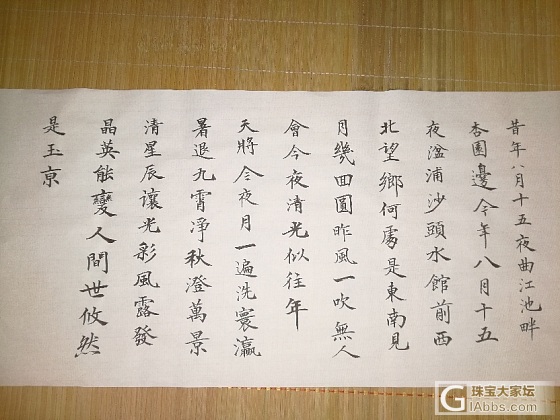 昔年八月十五夜曲江池畔
杏園邊今年八月十五
夜湓浦沙頭水館前西
北望鄉何處是東南見
月幾回圓昨風一吹無人
會今夜清光似往年
天將今夜月一遍洗寰瀛
暑退九霄凈秋澄萬景
清星辰讓光彩風露發
晶英能變人間世攸然
是玉京
珠宝大家坛
iAbbs.com